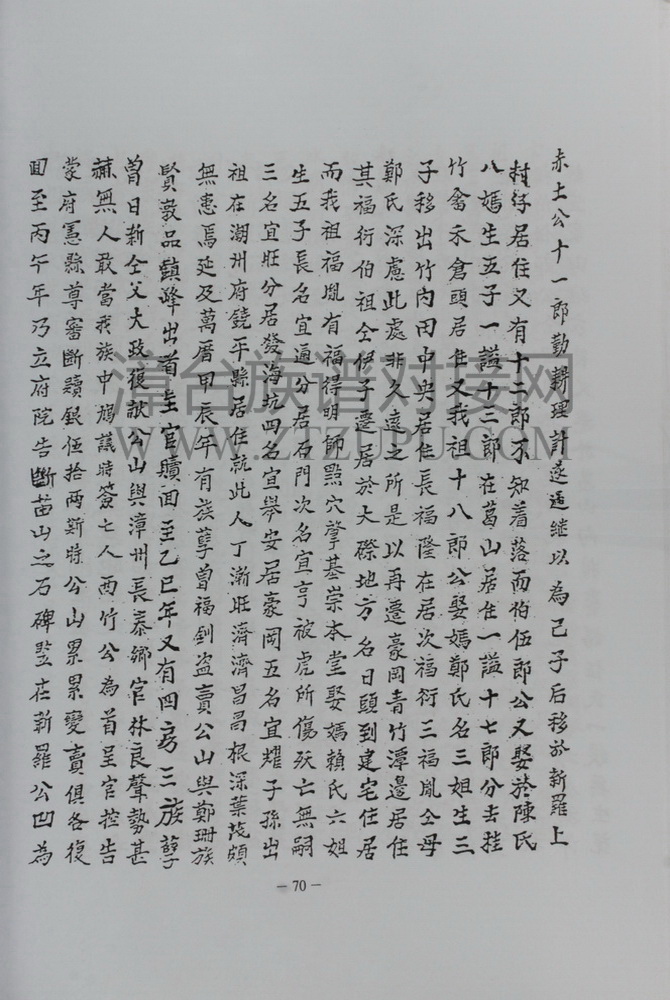 赤土公十一郎勤耕理計遂适继以為己子后移於新羅上
村仔居住又有十二郎不知着落而伯伍郎公又娶於陳氏
八媽生五子一謚十三郎在葛山居住一謚十七郎分去挂
竹畬禾倉頭居住又我祖十八郎公娶媽鄭氏名三姐生三
子移出竹內田中央居住長福隆在居次福衍三福胤仝母
鄭氏深慮此處非久遠之所是以再遷豪岡青竹潭邊居住
其福衍伯祖仝伊子遷居於大磜地方名曰頭到建宅住居
而我祖福胤有福得明師點穴肇基崇本堂娶媽賴氏六姐
生五子長名宜遍分居石門次名宜亨被虎所傷殀亡無嗣
三名宜旺分居發海坑四名宜舉安居豪岡五名宜耀子孫出
祖在湖州府饒平縣居住就此人丁漸旺濟濟昌昌根深葉茂頗
無恙焉延及萬厝甲辰年有族孽曾福釗盜賣公山與鄭珊族
賢敦品鎮峰出首呈官贖回至乙巳年又有四房三族孽
曾日新仝父大政復獻公山與漳州長泰鄉宦林良聲勢甚
赫無人敢當我族中鳩議時簽七人西竹公為首呈官控告
蒙府憲縣尊審斷贖銀伍拾兩斯時公山累累變賣俱各復
回至丙午年乃立府院告斷苗山之石碑豎在新羅公凹為
－70－
漳台族谱对接网
WWW.ZTZUPU.COM